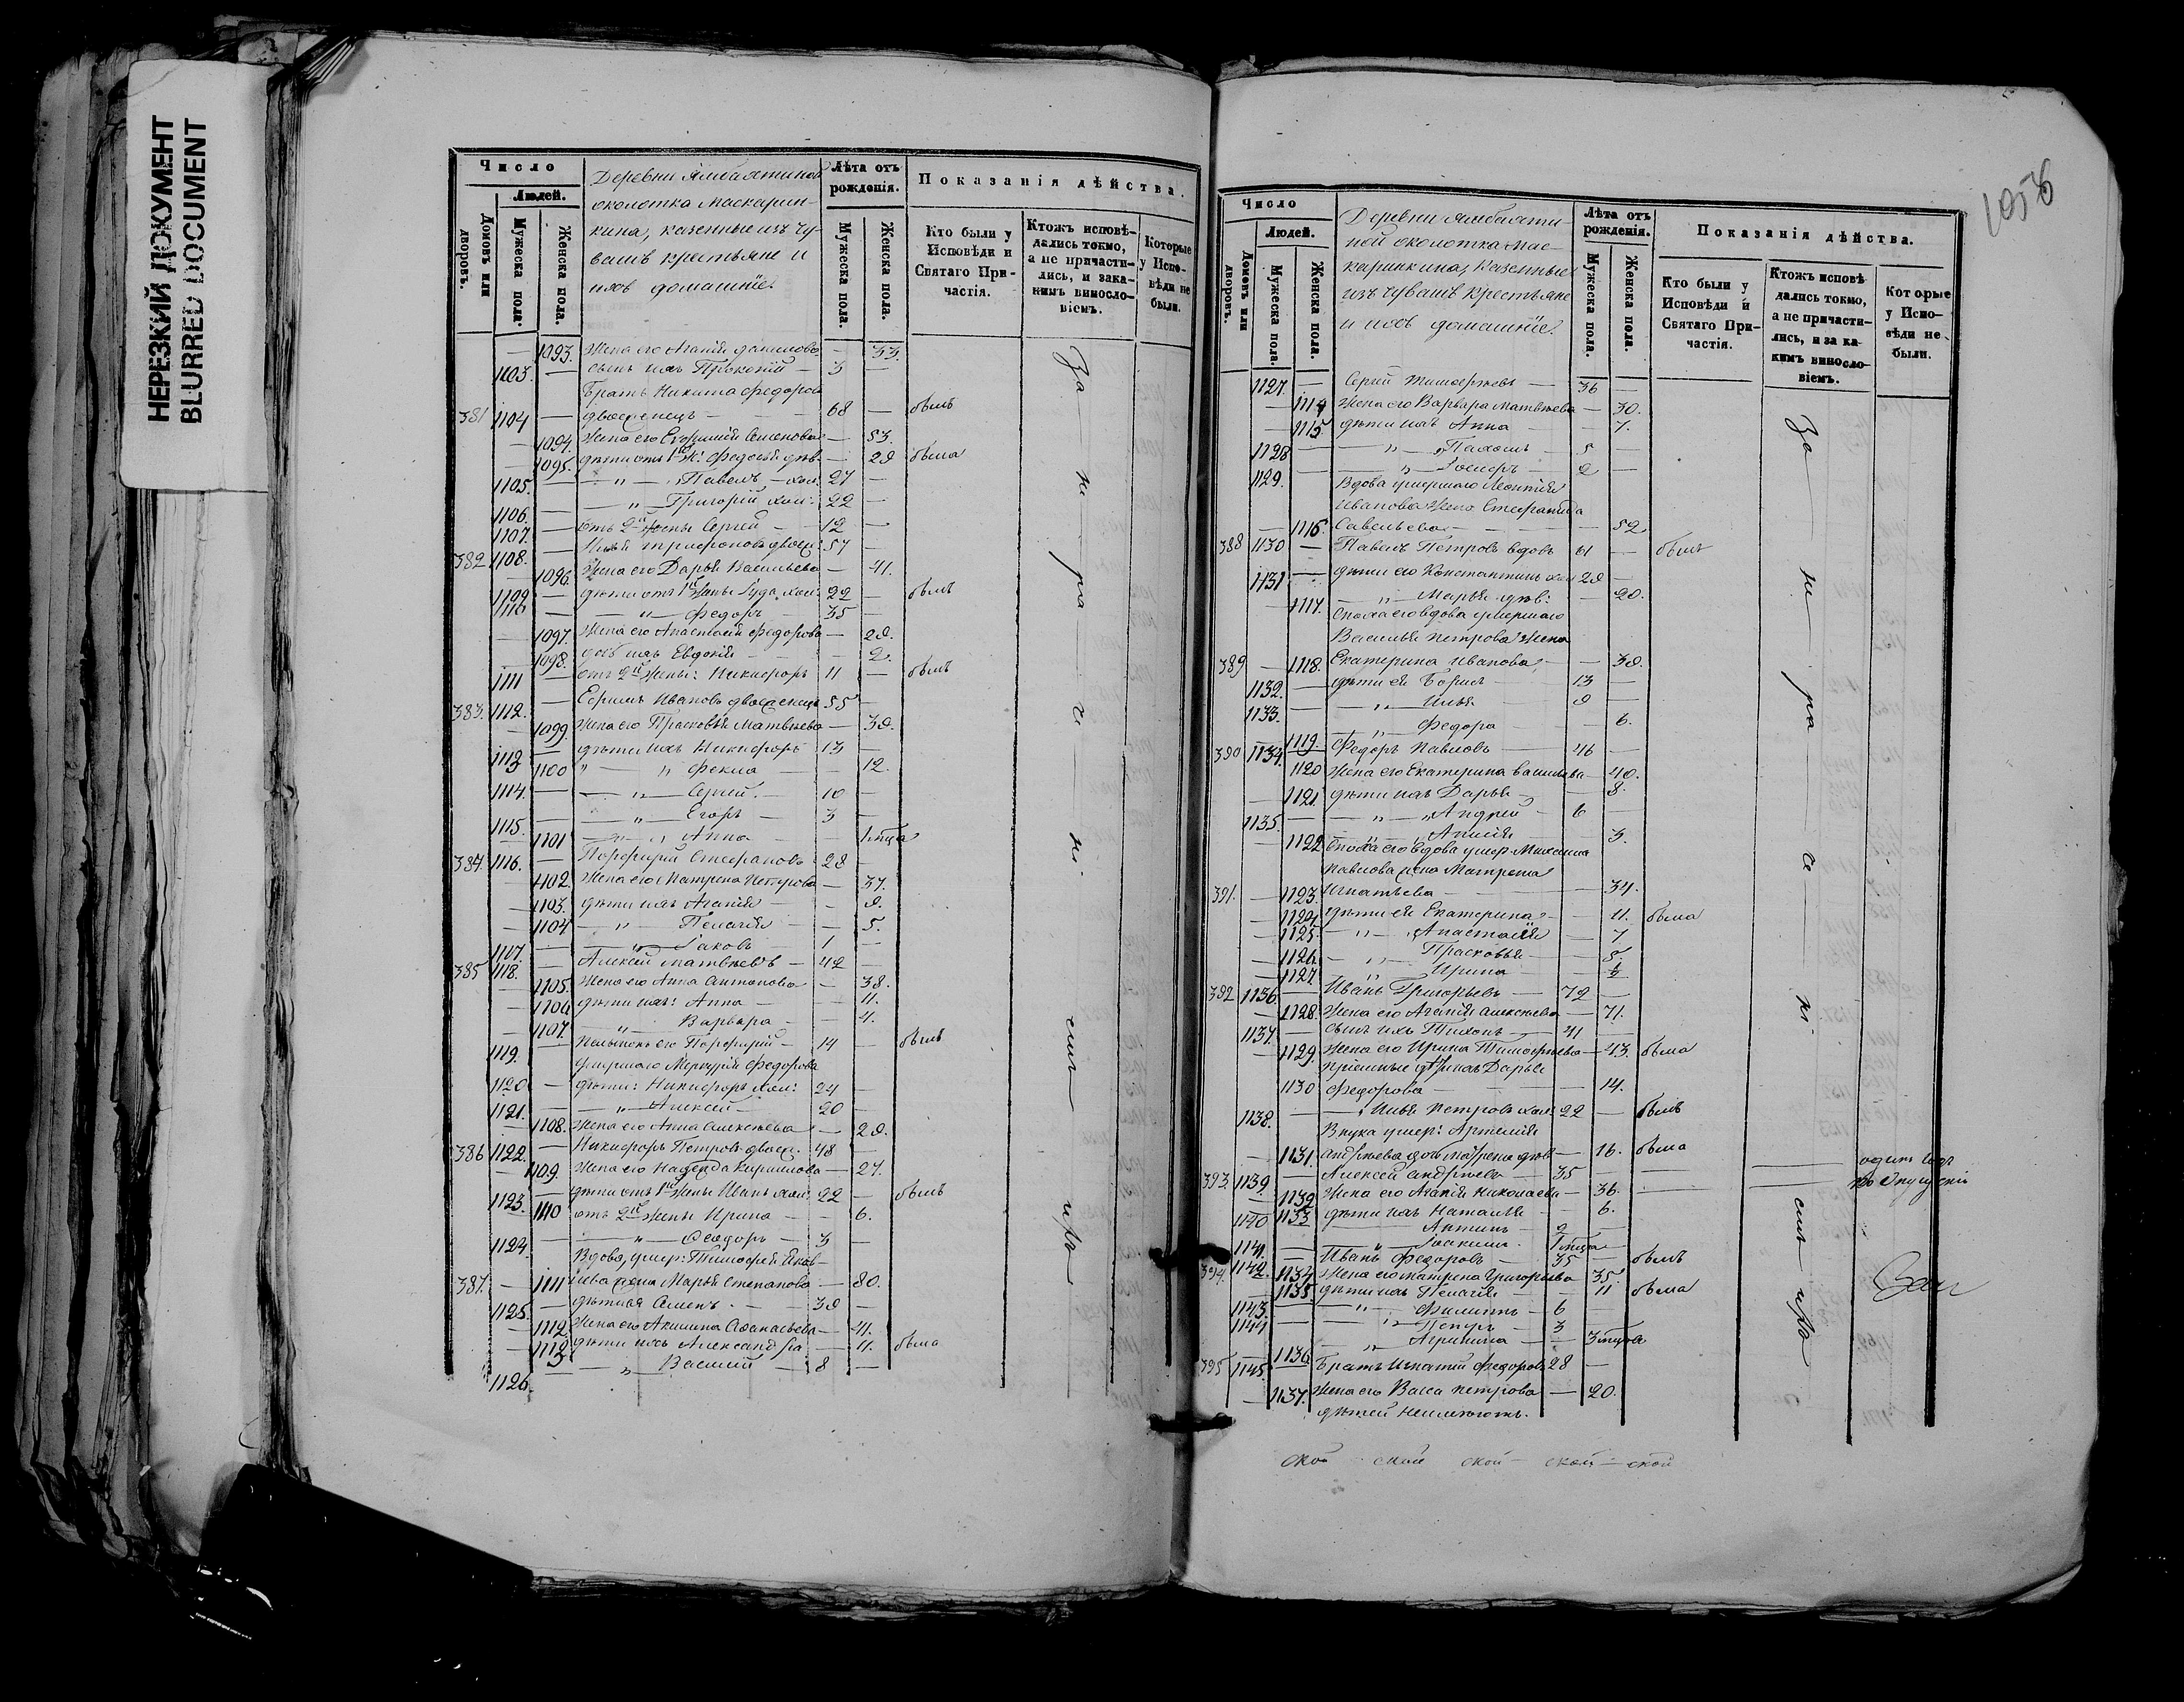 НЕРЕЗКИЙ ДОКУМЕНТ
BLURRED DOCUMENT
Число
Людей.
Домовъ или дворовъ.
Мужеска пола.
Женска пола.
Деревни Ямбахтиной
околотка Маскарин-
кина, казенные изъ Чу-
вашъ крестьяне и
ихъ домашніе.
Лѣта отъ рожденія.
Мужеска пола.
Женска пола.
Показанія дѣйства.
Кто были у Исповѣди и Святаго При-частія.
Ктожъ исповѣ-дались токмо, а не причасти-лись, и зака-кимъ винсло-віемъ.
Которые у Испо-вѣди не были.
— 1093. Жена его Агапія Данилова — 33.
1103. — сынъ ихъ Прокопій — 3 —
Братъ Никита Федоровъ
381 1104 — двоеженецъ — 68 — былъ
— 1094. Жена его Евфимія Семенова — 53.
— 1095. дѣти отъ 1й ж: Федосія дѣв. — 29 была
1105. — „ Павелъ, — хол: 27 —
1106. — „ Григорій хол: 22 —
1107. — отъ 2й жены Сергей — 12 —
382 1108. — Илья Трифоновъ двоеж: 57 —
— 1096. Жена его Дарья Васильева — 41.
1109. — дѣти отъ 1й жены Іуда хол: 22 — былъ
1110 — „ Федоръ 35 —
— 1097. Жена его Анастасія Федорова — 29.
— 1098. дочь ихъ Евдокія — 2.
1111 — отъ 2й жены: Никифоръ 11 — былъ
383. 1112. — Ефимъ Ивановъ двоеженецъ 55 —
— 1099. Жена его Прасковья Матвѣева — 39.
1113 — дѣти ихъ Никифоръ — 13 —
1100 „ „ Фекла — 12.
1114. — „ Сергей. — 10 —
1115. — „ Егоръ — 3 —
— 1101 „ Анна — 1 мѣца
384. 1116. — Порфирій Стефановъ 28 —
— 1102. Жена его Матрена Петрова — 37.
— 1103. дѣти ихъ Агапія — 9.
— 1104 „ Пелагія — 5.
1117. — „ Іаковъ — 1 —
385 1118. — Алексѣй Матвѣевъ — 42 —
— 1105. Жена его Анна Антонова — 38.
— 1106 дѣти ихъ: Анна — 11.
— 1107. „ Варвара — 4.
1119. — Пасынокъ его Порфирій — 14 — былъ
Умершаго Меркурія Федорова
1120 — дѣти: Никифоръ хол: 24 —
1121. — „ Алексѣй — 20 —
— 1108. Жена его Анна Алексѣева — 29.
386 1122. — Никифоръ Петровъ двоеж. 48 —
— 1109. Жена его Надежда Кирилова — 27.
1123. — дѣти отъ 1й жены Иванъ хол: 22 — былъ
— 1110 отъ 2й жены Ирина — 6.
1124. — „ Ѳеодоръ — 3 —
Вдова, умер: Тимофея Яков-
387. — 1111 лева жена Марья Степанова — 80.
1125. — Семенъ. — 39 —
— 1112 Жена его Акилина Афанасьева — 41.
— 1113 дѣти ихъ Александра — 11. была
1126. — „ Василій — 8 —
За не ра че ні емъ ихъ
1056
Число
Людей.
Домовъ или дворовъ.
Мужеска пола.
Женска пола.
Деревни Ямбахти-
ной околотка Мас-
каринкина, казенные
изъ Чувашъ крестьяне
и ихъ домашніе.
Лѣта отъ рожденія.
Мужеска пола.
Женска пола.
Показанія дѣйства.
Кто были у Исповѣди и Святаго При-частія.
Ктожъ исповѣ дались токмо, а не причасти-лись, и за ка-кимъ винсло-віемъ.
Которые у Испо-вѣди не были.
1127. — Сергей Тимофеевъ — 36 —
— 1114 Жена его Варвара Матвѣева — 30.
— 1115. дѣти ихъ Анна — 7.
1128 — „ Пахомъ 5 —
1129. — „ Іосифъ — 2 —
Вдова умершаго Леонтія
Иванова жена Стефанида
— 1116. Савельева — 52
388 1130 — Павелъ Петровъ вдовъ 61 — былъ
1131 — дѣти его Константинъ хол 29 —
— 1117. „ Марья дѣв: — 20.
Сноха его вдова умершаго
Василья Петрова жена
389 — 1118. Екатерина Иванова — 39.
1132. — дѣти ея Борисъ 13 —
1133. — „ Илья 9 —
— 1119. „ Федора — 6.
390 1134. — Федоръ Павловъ 46 —
1120 Жена его Екатерина Васильева — 40.
— 1121. дѣти ихъ Дарья — 8.
1135. — „ Андрей — 6
— 1122 „ Анисія — 3.
Сноха его вдова умер. Михаила
Павлова жена Матрена
391. — 1123. Игнатьева — 34.
— 1124. дѣти ея Екатерина — 11. была
— 1125. „ Анастасія — 7
— 1126. „ Прасковья — 5
— 1127 „ Ирина — ½
392 1136. — Иванъ Григорьевъ — 72 —
— 1128. Жена его Агапія Алексѣева — 71.
1137. — сынъ ихъ Тихонъ — 41
— 1129. Жена его Ирина Тимофѣева — 43. была
Дарья
1130 Федорова — 14.
1138. — „ Илья Петровъ хол: 22 — былъ
Внука умер: Артемія
— 1131. Андрѣева дочь Матрена дѣв — 16. была
393. 1139. — Алексѣй Андрѣевъ — 35 — одинъ годъ
— 1132 Жена его Агапія Николаева — 36. по опущенію
1133 дѣти ихъ Наталья — 6.
1140 — Антипъ — 2
1141. — „ Іоакимъ. 1 мѣца —
394. 1142. — Иванъ Федоровъ — 35 — былъ
1134 Жена его Матрена Григорьева 35.
— 1135 дѣти ихъ Пелагія — 11 была
1143. — „ Филиппъ — 6
1144 — „ Петръ — 3
1136 „ Агрипина — 3 мѣца
395 1145 — Братъ Игнатій Федоровъ 28 —
— 1137. Жена его Васса Петрова — 20.
дѣтей неимѣютъ.
За не ра че ні емъ ихъ
ской ской ской ской ской